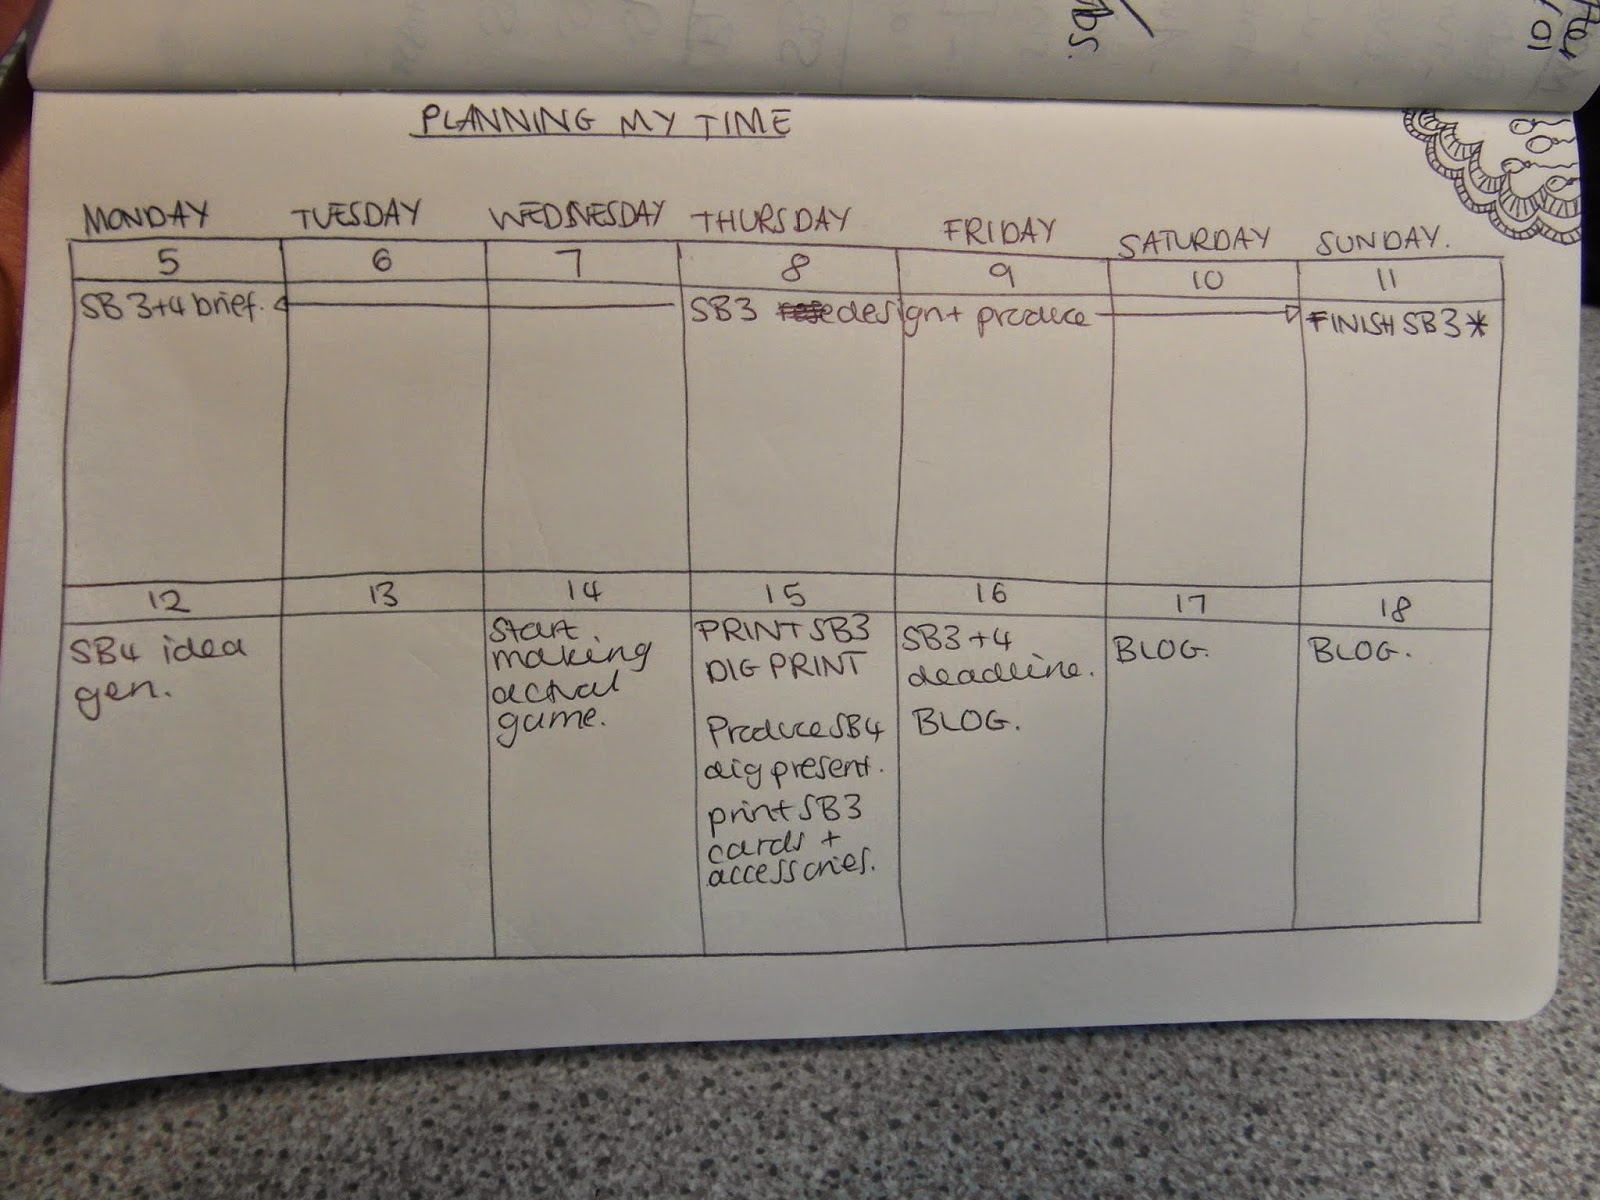 PLANNING MY TIME
MONDAY TUESDAY WEDNESDAY THURSDAY FRIDAY SATURDAY SUNDAY.
5 6 7 8 9 10 11
SB3+4 brief. SB3 design + produce FINISH SB3*
12 13 14 15 16 17 18
SB4 idea
gen.
Start
making
actual
game.
PRINT SB3
DIG PRINT
Produce SB4
dig present.
print SB3
cards +
accessories.
SB3+4
deadline.
BLOG.
BLOG.
BLOG.